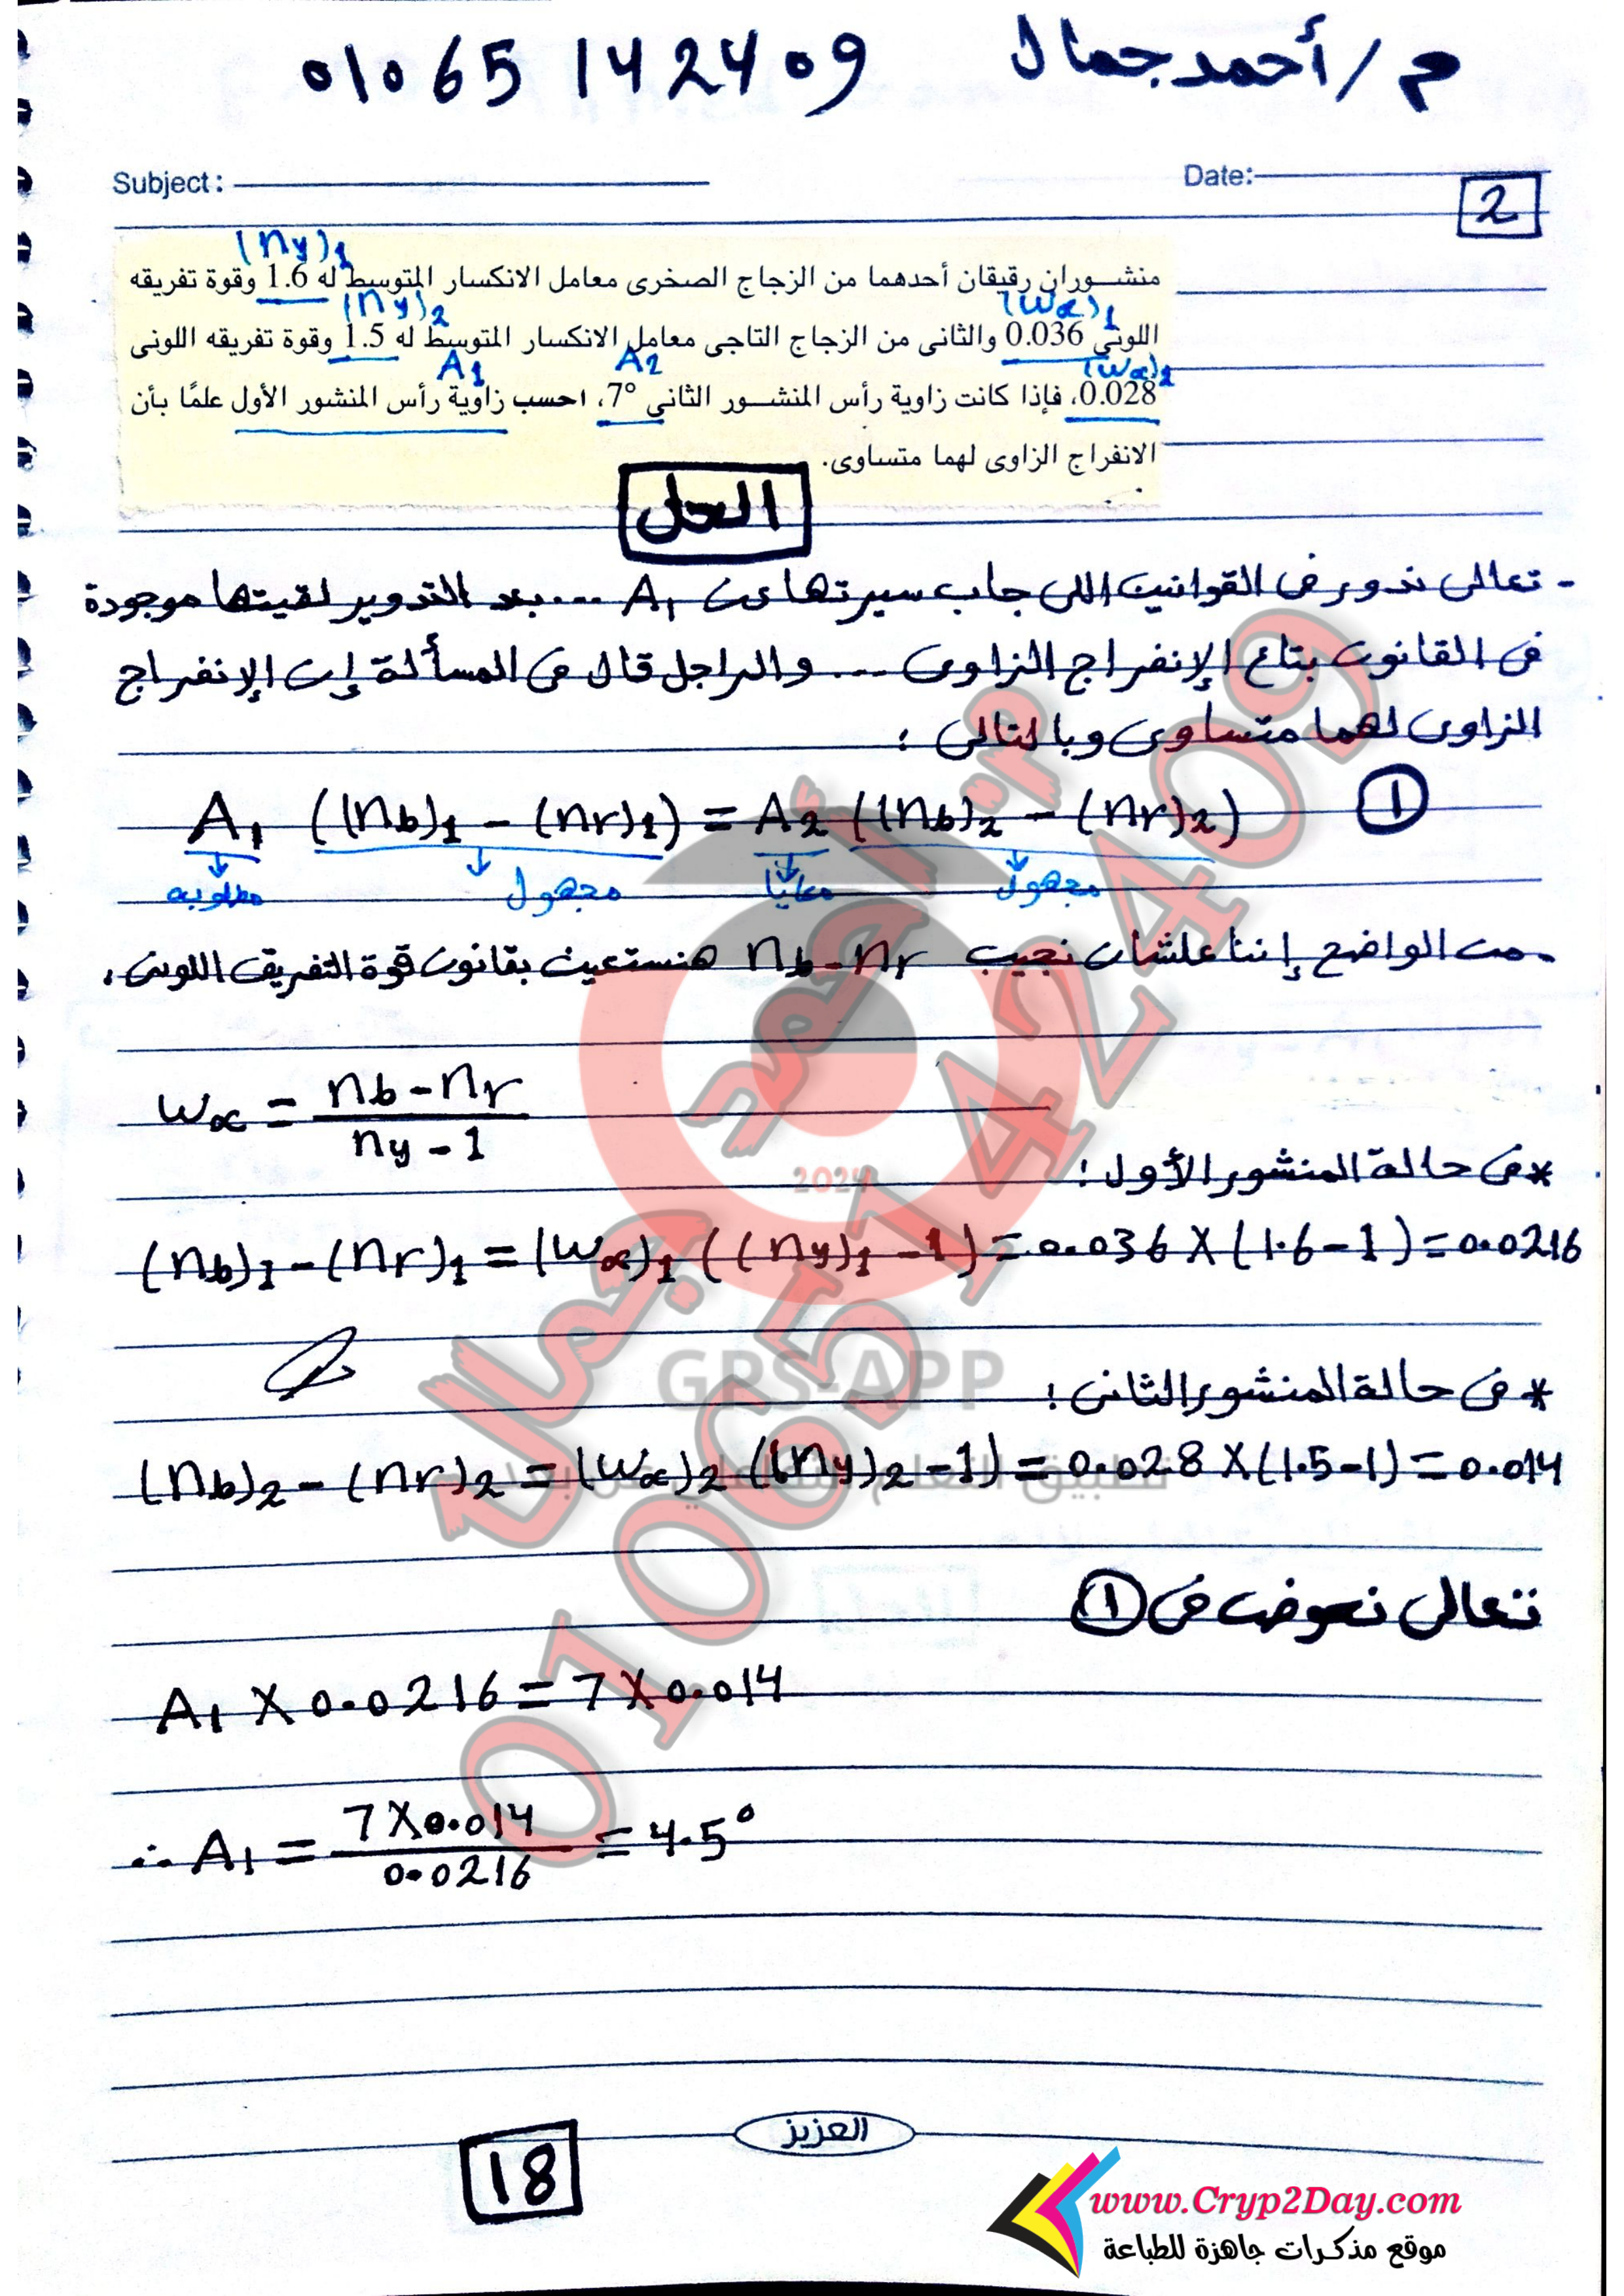 م/أحمد جمال 01065142409
Subject: Date:
2
(ny)1
منشوران رقيقان أحدهما من الزجاج الصخرى معامل الانكسار المتوسط له 1.6 وقوة تفريقه
(ny)2 (wα)1
اللونى 0.036 والثانى من الزجاج التاجى معامل الانكسار المتوسط له 1.5 وقوة تفريقه اللونى
A1 A2 (wα)2
0.028، فإذا كانت زاوية رأس المنشور الثانى 7°، احسب زاوية رأس المنشور الأول علمًا بأن
الانفراج الزاوى لهما متساوى.
الحل
- تعالى ندور فى القوانين اللى جاب سيرتها عن A1 ... بعد التدوير لقيتها موجودة
فى القانون بتاع الإنفراج الزاوى ... والراجل قال فى المسألة إن الإنفراج
الزاوى لهما متساوى وبالتالى :
A1 ((nb)1 - (nr)1) = A2 ((nb)2 - (nr)2) ①
مطلوبه مجهول معايا مجهول
- من الواضح إننا علشان نجيب nb - nr هنستعين بقانون قوة التفريق اللونى.
wα = (nb - nr) / (ny - 1)
* فى حالة المنشور الأول :
(nb)1 - (nr)1 = (wα)1 ((ny)1 - 1) = 0.036 X (1.6 - 1) = 0.0216
* فى حالة المنشور الثانى :
(nb)2 - (nr)2 = (wα)2 ((ny)2 - 1) = 0.028 X (1.5 - 1) = 0.014
تعالى نعوض فى ①
A1 X 0.0216 = 7 X 0.014
∴ A1 = (7 X 0.014) / 0.0216 = 4.5°
العزيز
18
www.Cryp2Day.com
موقع مذكرات جاهزة للطباعة
أحمد جمال
01065142409
2024
GPS-APP